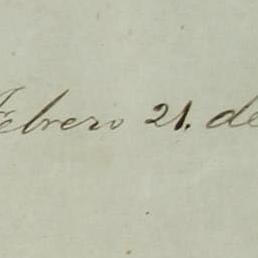 Febrero 21. de